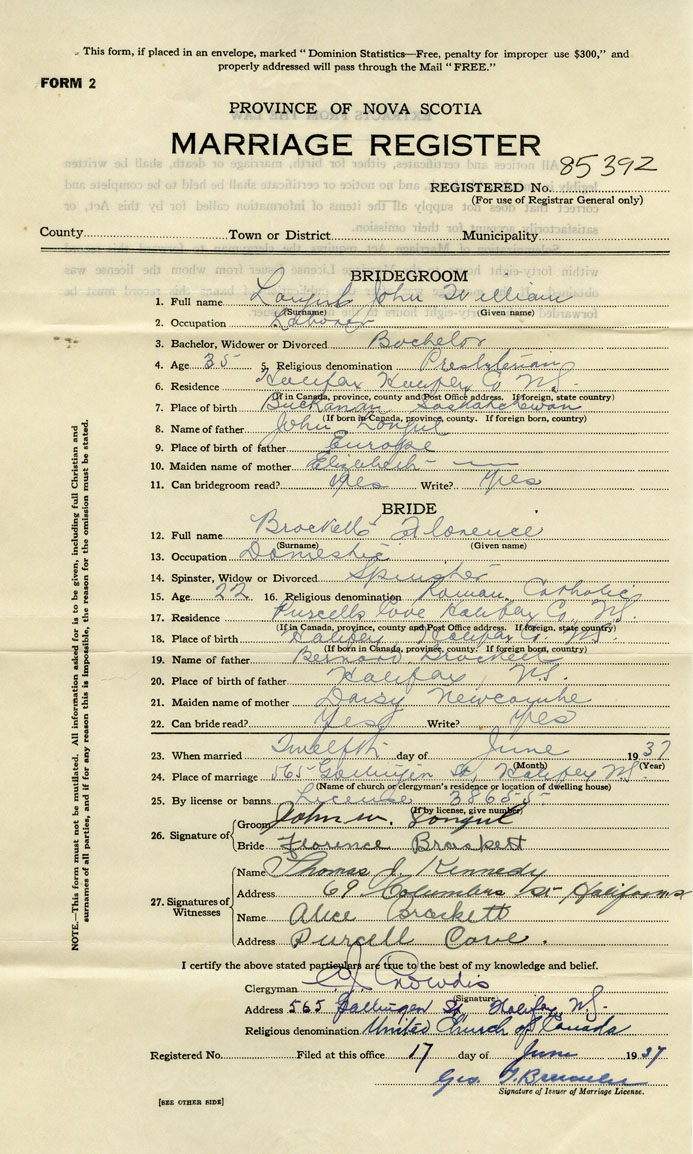 This form, if placed in an envelope, marked "Dominion Statistics—Free, penalty for improper use $300," and
properly addressed will pass through the Mail "FREE."
FORM 2
PROVINCE OF NOVA SCOTIA
MARRIAGE REGISTER
REGISTERED No. 85392
(For use of Registrar General only)
County Town or District Municipality
BRIDEGROOM
1. Full name John William
(Surname) (Given name)
2. Occupation Laborer
3. Bachelor, Widower or Divorced Bachelor
4. Age 35 5. Religious denomination Presbyterian
6. Residence Halifax Halifax Co N.S.
(If in Canada, province, county and Post Office address. If foreign, state country)
7. Place of birth Buchanan Saskatchewan
(If born in Canada, province, county. If foreign born, country)
8. Name of father John Longul
9. Place of birth of father Europe
10. Maiden name of mother Elizabeth —
11. Can bridegroom read? Yes Write? Yes
BRIDE
12. Full name Brackett Florence
(Surname) (Given name)
13. Occupation Domestic
14. Spinster, Widow or Divorced Spinster
15. Age 22 16. Religious denomination Roman Catholic
17. Residence Purcells Cove Halifax Co, N.S.
(If in Canada, province, county and Post Office address. If foreign, state country)
18. Place of birth Halifax Halifax Co. N.S.
(If born in Canada, province, county. If foreign born, country)
19. Name of father Bernard Brackett
20. Place of birth of father Halifax, N.S.
21. Maiden name of mother Daisy Newcombe
22. Can bride read? Yes Write? Yes
23. When married Twelfth day of June 1937
(Month) (Year)
24. Place of marriage 565 Gottingen St, Halifax N.S.
(Name of church or clergyman's residence or location of dwelling house)
25. By license or banns License 38655
(If by license, give number)
26. Signature of
Groom John W. Longul
Bride Florence Brackett
27. Signatures of Witnesses
Name Thomas J. Kennedy
Address 69 Columbus St Halifax N.S
Name Alice Brackett
Address Purcell Cove.
I certify the above stated particulars are true to the best of my knowledge and belief.
Clergyman Crowdis
(Signature)
Address 565 Gottingen St Halifax, N.S.
Religious denomination United Church of Canada
Registered No. Filed at this office 17 day of June 1937
Geo.
Signature of Issuer of Marriage License.
[SEE OTHER SIDE]
NOTE.—This form must not be mutilated. All information asked for is to be given, including full Christian and
surnames of all parties, and if for any reason this is impossible, the reason for the omission must be stated.